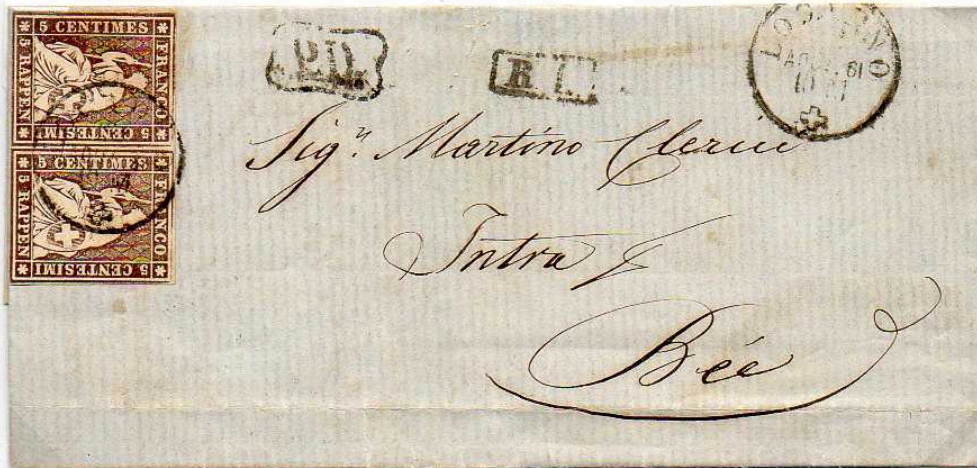 5 CENTIMES
FRANCO
5 CENTESIMI
5 RAPPEN
5 CENTIMES
FRANCO
5 CENTESIMI
5 RAPPEN
P.D.
R. L.
LOCARNO
61
Sig.r Martino Clerici
Intra p
Bée